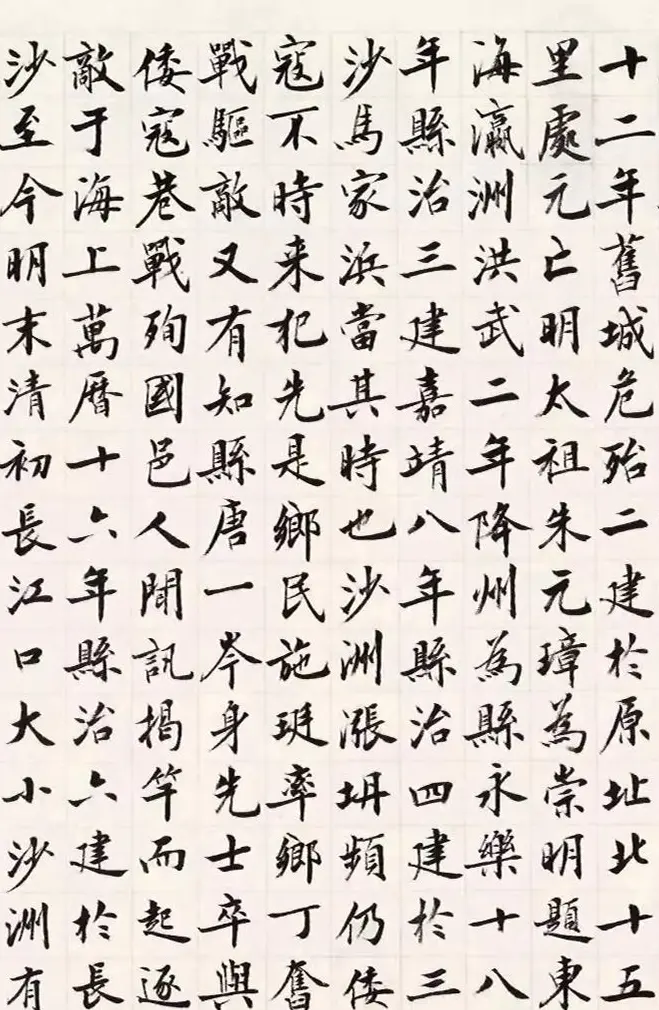 十二年舊城危殆二建於原址北十五
里處元亡明太祖朱元璋為崇明題東
海瀛洲洪武二年降州為縣永樂十八
年縣治三建嘉靖八年縣治四建於三
沙馬家浜當其時也沙洲漲坍頻仍倭
寇不時来犯先是鄉民施珽率鄉丁奮
戰驅敵又有知縣唐一岑身先士卒與
倭寇巷戰殉國邑人聞訊揭竿而起逐
敵于海上萬曆十六年縣治六建於長
沙至今明末清初長江口大小沙洲有